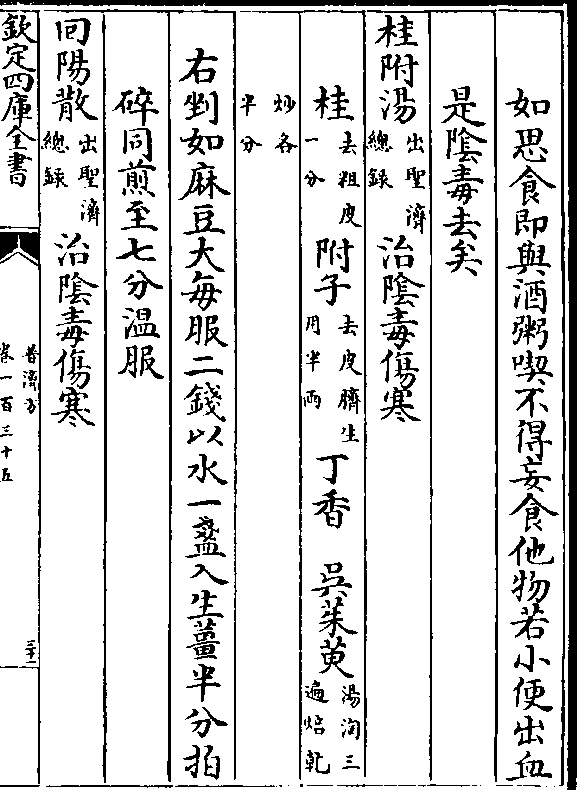 如思食即與酒粥喫不得妄食他物若小便出血
是陰毒去矣
桂附湯出聖濟總録治陰毒傷寒
桂去粗皮一分 附子去皮臍生用半兩 丁香 吳茱萸湯洵三遍焙乾
炒各半分
右剉如麻豆大每服二錢以水一盞入生薑半分拍
碎同煎至七分温服
囘陽散出聖濟總録治陰毒傷寒
欽定四庫全書
普濟方
卷一百三十五